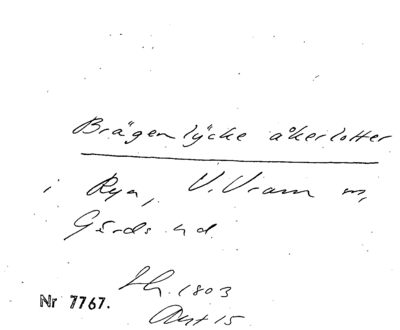 Brägenlycke åkerlotter
i Rya, V. Vram m,
Gärds hd.
Sk. 1803
Nr 7767.
Avst 15